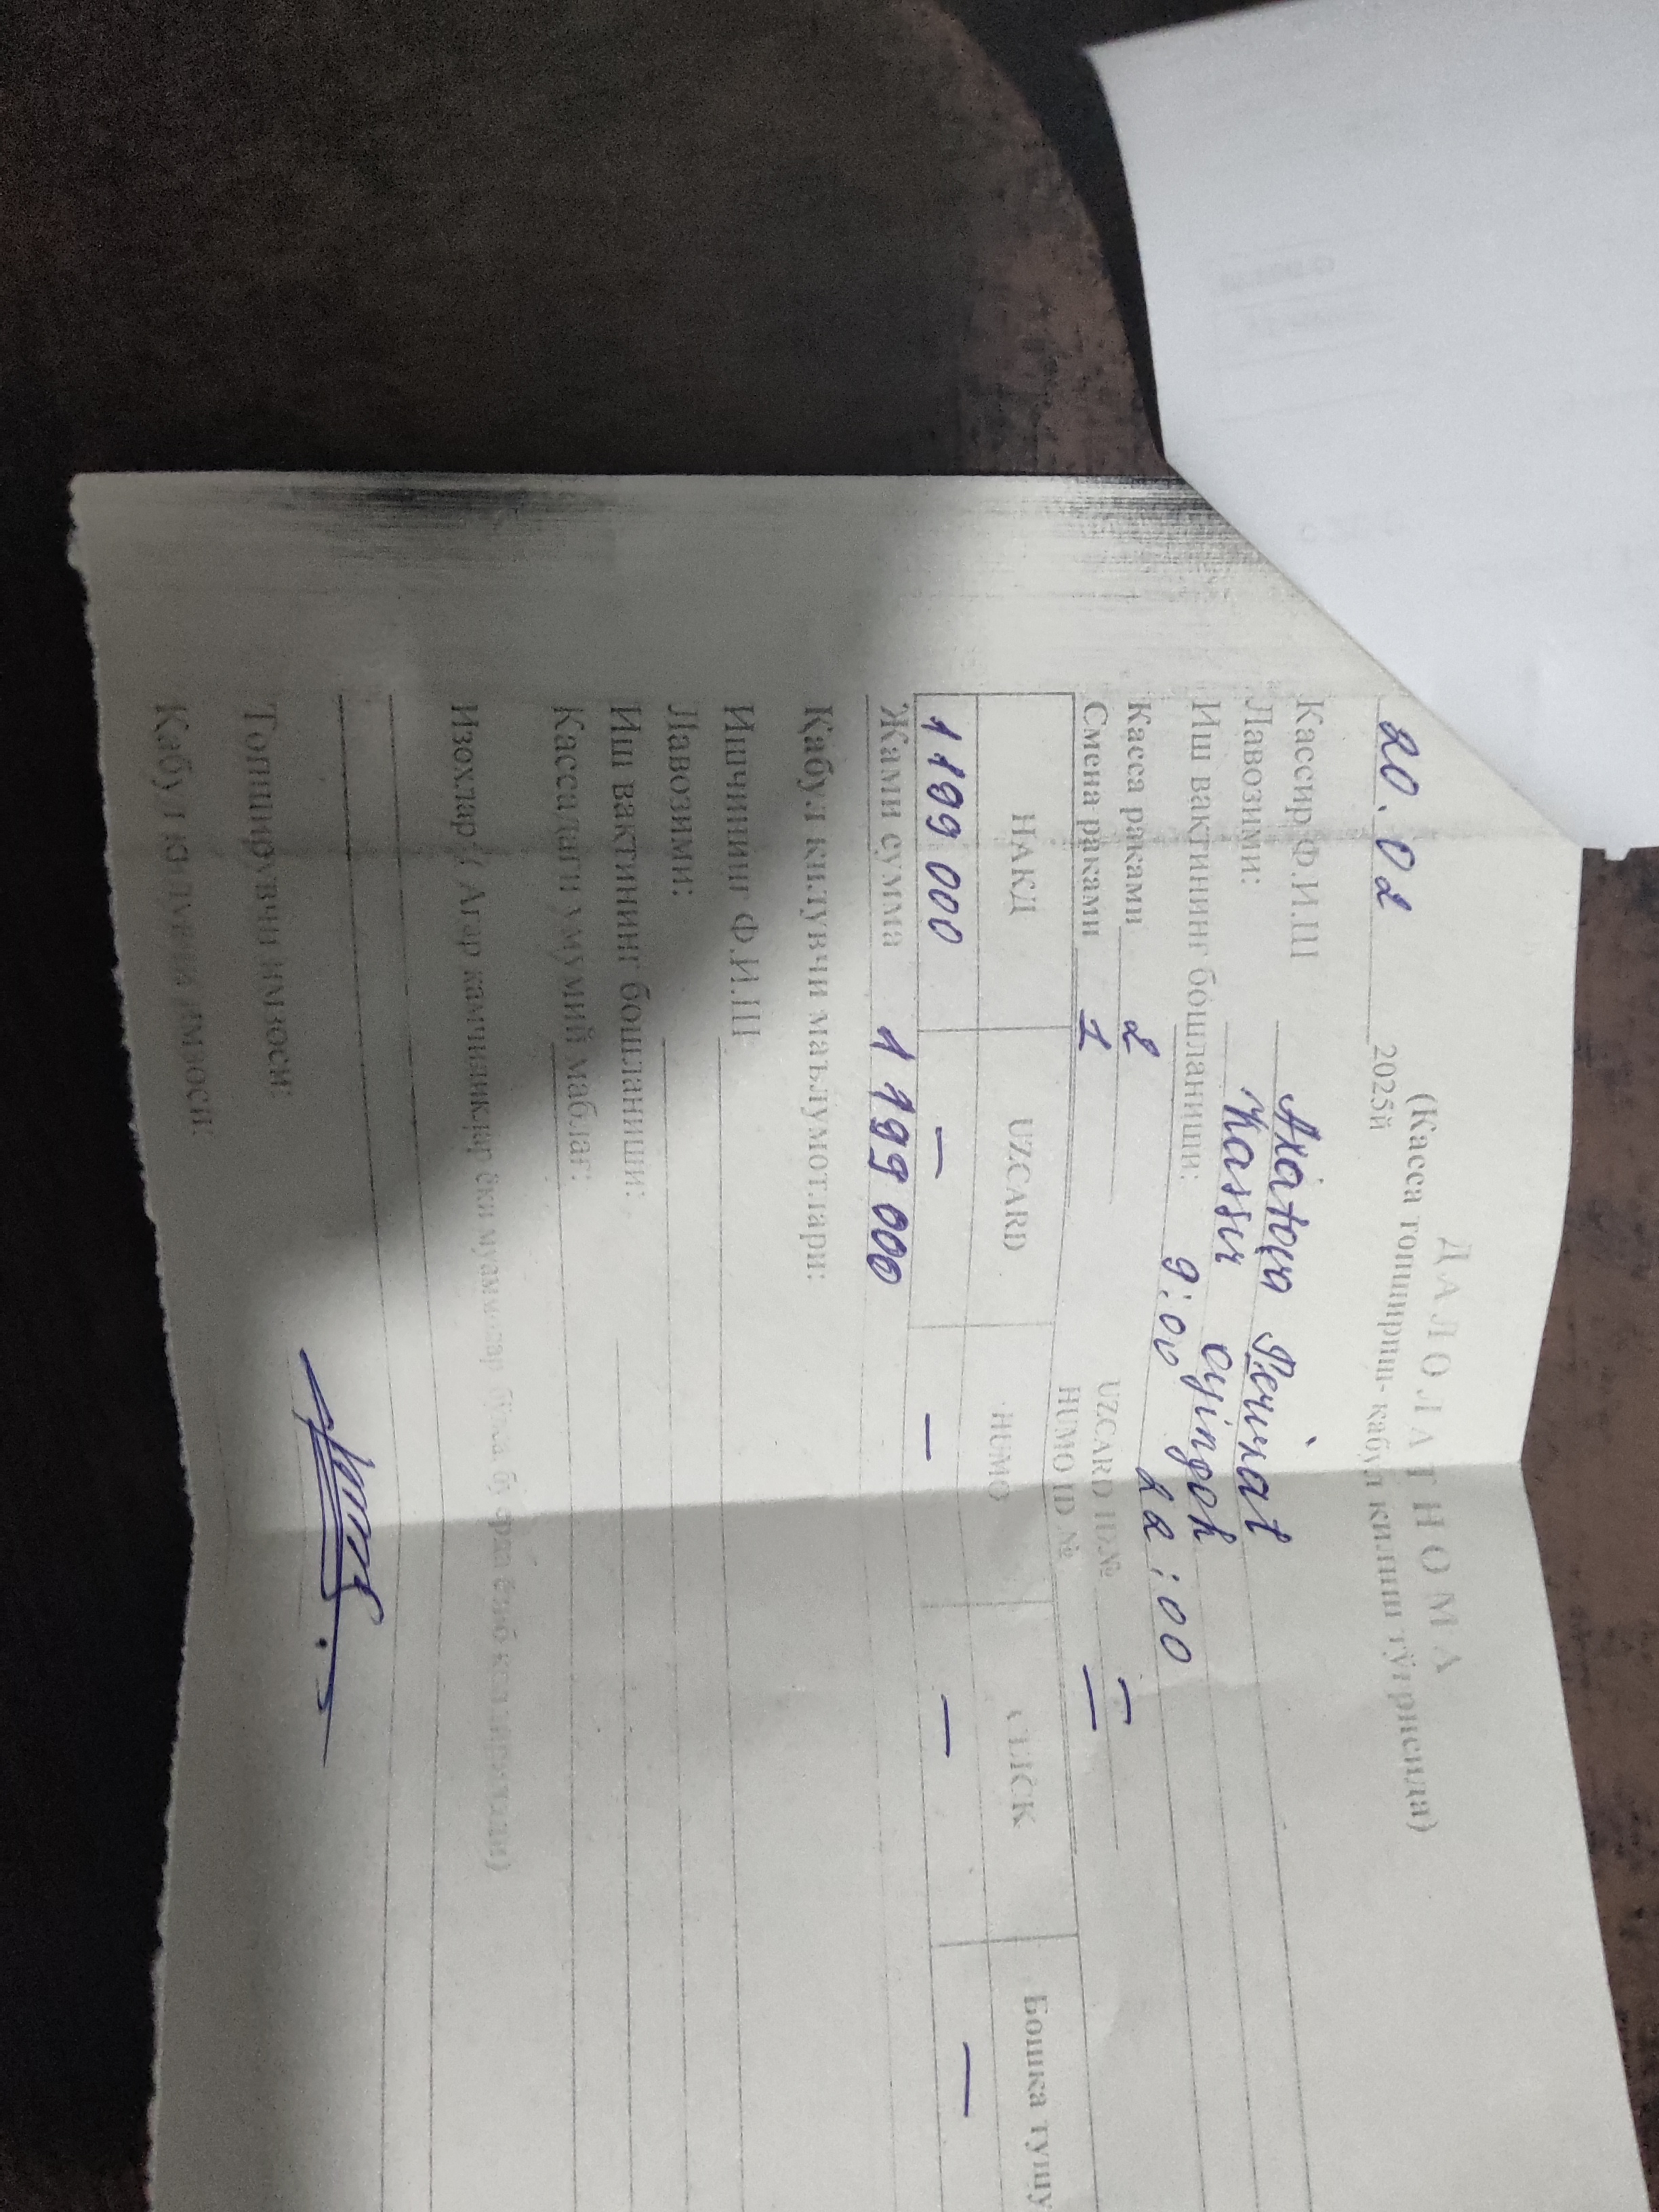 ДАЛОЛАТНОМА
(Касса топшириш- кабул килиш тўғрисида)
20.02 2025й
Кассир Ф.И.Ш
Лавозими: Kassir oyingoh
Иш вактининг бошланиши: 9:00 22:00
Касса раками 2 UZCARD ID№ —
Смена раками 1 HUMO ID № —
НАКД UZCARD HUMO CLICK Бошка тушу
1 199 000 — — — —
Жами сумма 1 199 000
Кабул килувчи маълумотлари:
Ишчининг Ф.И.Ш
Лавозими:
Иш вактининг бошланиши:
Кассадаги умумий маблаг:
Изохлар: / Агар камчиликлар ёки муаммолар
Топширувчи имзоси:
Кабул килувчи имзоси: